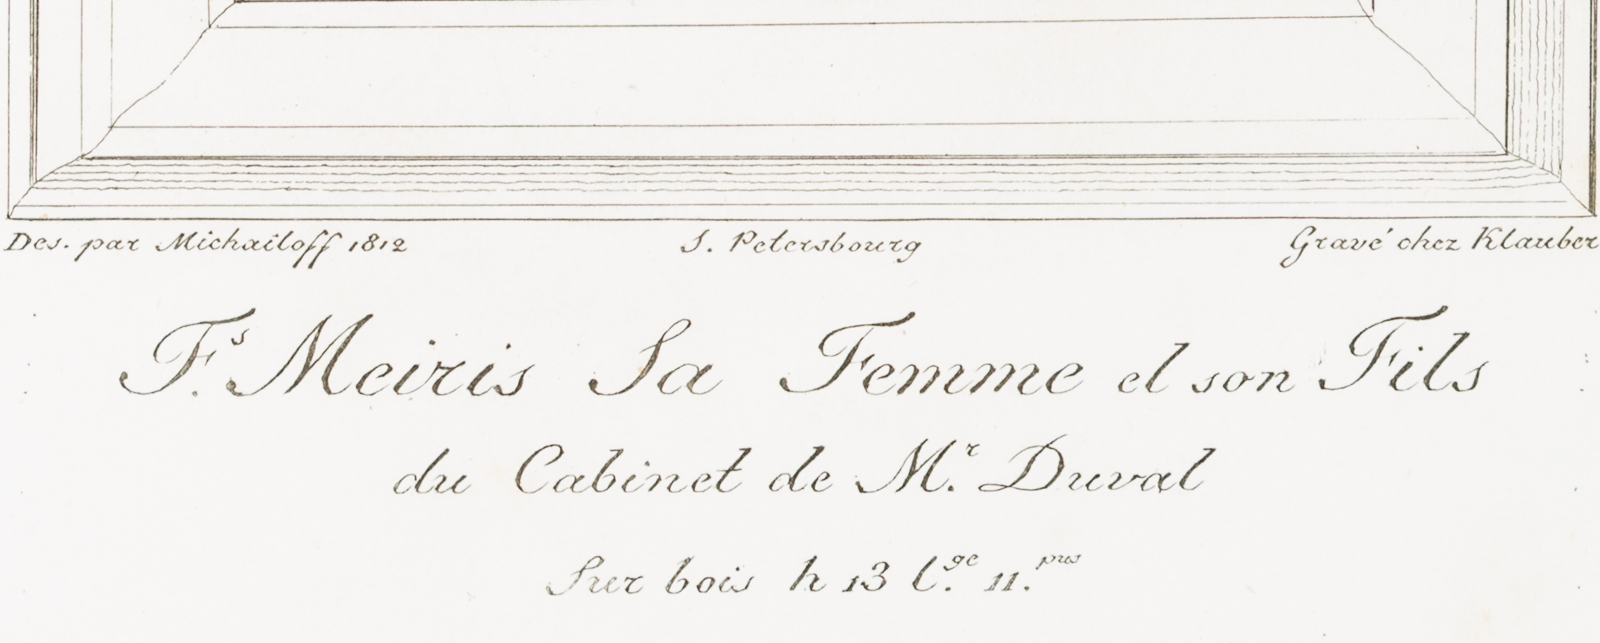 Des. par Michailoff 1812 S. Petersbourg Gravé chez Klauber
F.s Meiris Sa Femme et son Fils
du Cabinet de M.r Duval
Sur bois h 13 l.ge 11.pus